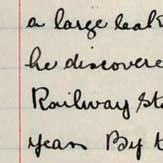 a large leak
he discovere
Railway Sta
years By t